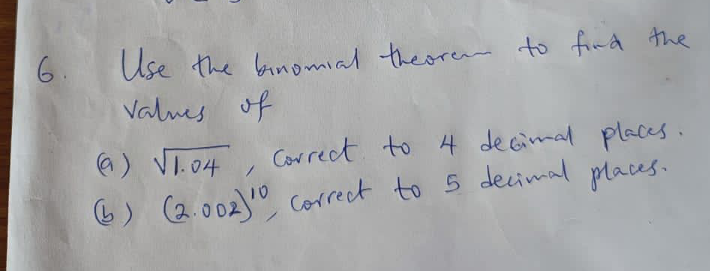 6. Use the binomial theorem to find the
values of
(a) √1.04 , correct to 4 decimal places.
(b) (2.002)¹⁰, correct to 5 decimal places.